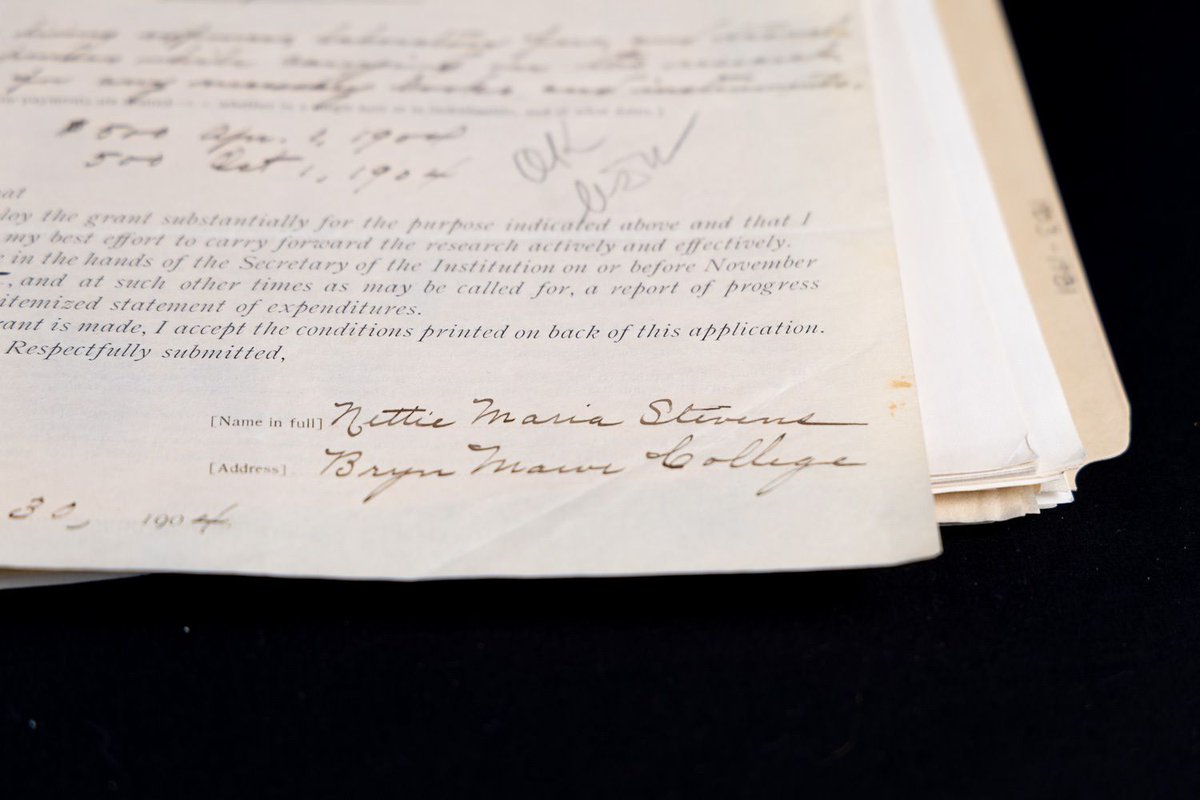 living expenses, laboratory fees, and
while carrying on the research
for any necessary books and instruments.
$500 Apr. 1, 1904
500 Oct 1, 1904
OK
the grant substantially for the purpose indicated above and that I
my best effort to carry forward the research actively and effectively.
in the hands of the Secretary of the Institution on or before November
, and at such other times as may be called for, a report of progress
itemized statement of expenditures.
is made, I accept the conditions printed on back of this application.
Respectfully submitted,
[Name in full] Nettie Maria Stevens
[Address] Bryn Mawr College
30, 1904